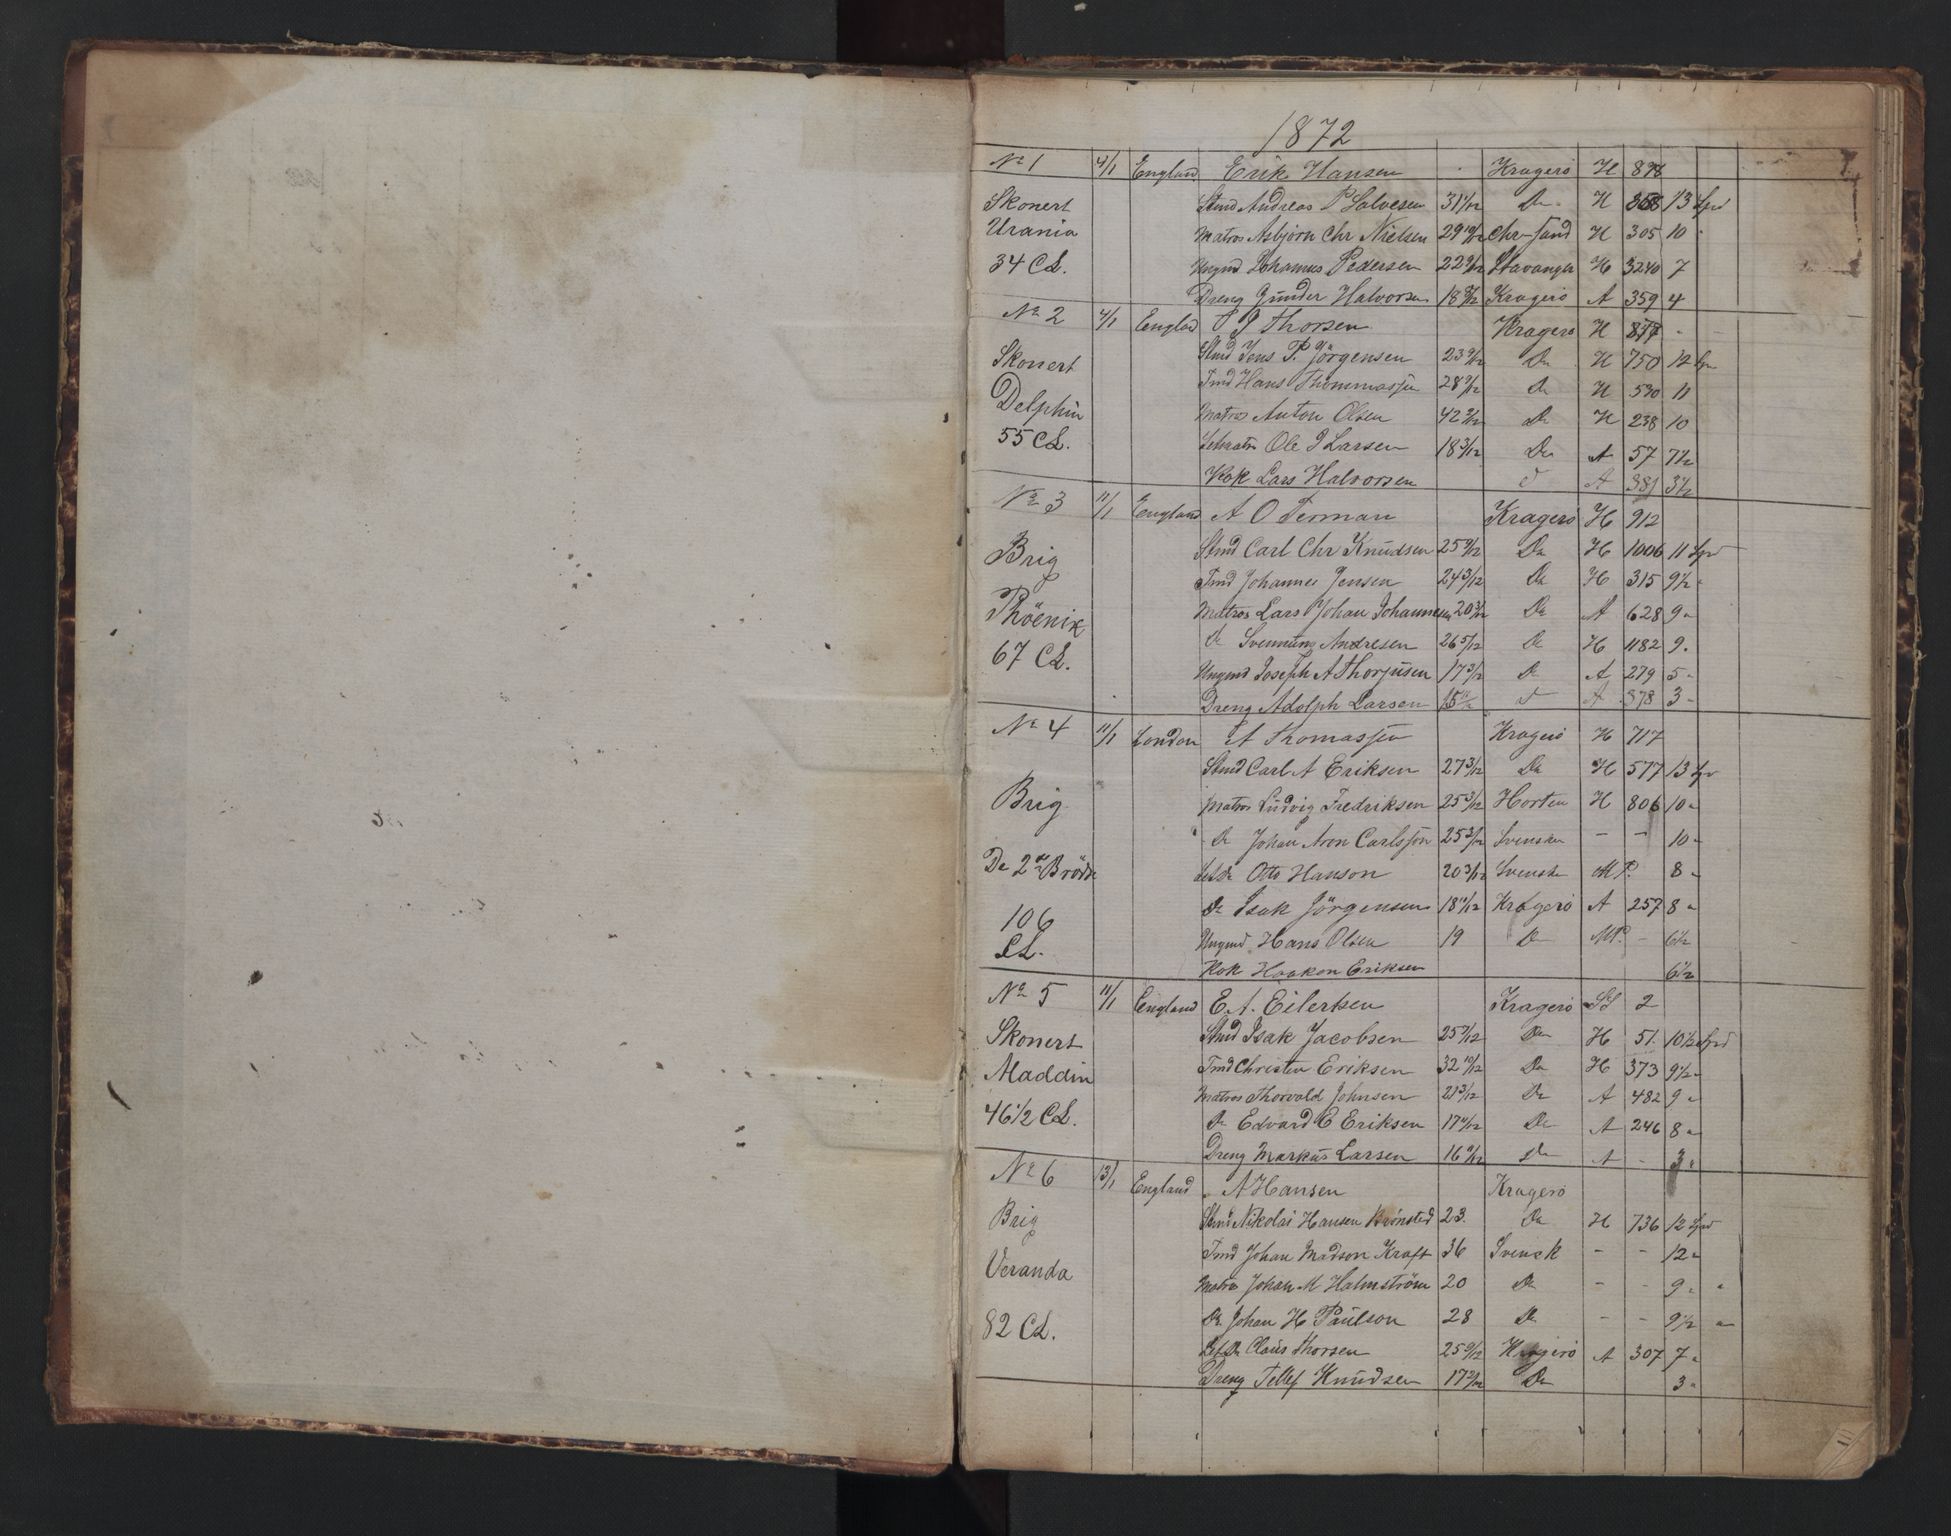 1872
No 1 4/1 England Erik Hansen Kragerö H 878
Skonert Stmd Andreas P Salvesen 31 1/12 Do H 368 13 Spd
Urania Matros Asbjörn Chr Nielsen 29 10/12 Chr-sand H 305 10
34 CL. Ungmd Johannes Pedersen Stavanger H 3240 7
Dreng Gunder Halvorsen 18 Kragerö A 359 4
No 2 4/1 England Thorsen Kragerö H
Skonert Stmd Jens P. Jörgensen 23 9/12 Do H 750 12
Delphin Tmd Hans Thommassen 28 Do H 530 11
Matros Anton Olsen 42 Do H 238 10
55 CL. Ole J Larsen 18 3/12 Do A 57 7 1/2
Kok Lars Halvorsen d A 381 3 1/2
No 3 11/1 England A O Terman Kragerö H 912
Brig Stmd Carl Chr Knudsen 25 9/12 Do H 1006 11 Spd
Tmd Johannes Jensen 24 3/12 Do H 315 9 1/2
Phöenix Matros Lars Johan Johannesen 20 3/12 Do A 628 9
Do Svennung Andresen 26 5/12 Do H 1182 9
67 CL. Ungmd Joseph A Thorjusen 17 3/12 Do A 279 5
Dreng Adolph Larsen 15 11/12 d A 378 3
No 4 11/1 London A Thomassen Kragerö H 717
Stmd Carl A Eriksen 27 3/12 Do H 577 13
Brig Matros Ludvig Fredriksen 25 3/12 Horten H 806 10
Do Johan Aron Carlsson 25 3/12 Svenske - - 10
De 2de Brödre Otto Hanson 20 3/12 Svenske MP. 8
106 Do Isak Jörgensen 18 11/12 Kragerö A 257 8
CL. Ungmd Hans Olsen 19 Do MP. - 6 1/2
Kok Haakon Eriksen 6 1/2
No 5 11/1 England E. A. Eilertsen Kragerö SS 2
Skonert Stmd Isak Jacobsen 25 Do H 51. 10 1/2 Spd
Aladdin Tmd Christen Eriksen 32 10/12 Do H 373 9 1/2
Matros Thorvald Johnsen 21 3/12 Do A 482 9
46 1/2 CL. Do Edvard E Eriksen 17 11/12 Do A 246 8
Dreng Markus Larsen 16 Do A - 3
No 6 13/1 England A Hansen Kragerö
Brig Stmd Nikolai Hansen Brönsted 23 Do H 736 12 Spd
Tmd Johan Madson Kraft 36 Svensk - - 12
Veranda Matros Johan M Halmström 20 Do - - 9
82 CL. Do Johan H Paulson 28 Do - - 9 1/2
Let Do Claus Thorsen 25 Kragerö A 307 7
Dreng Tellef Knudsen 17 Do 3